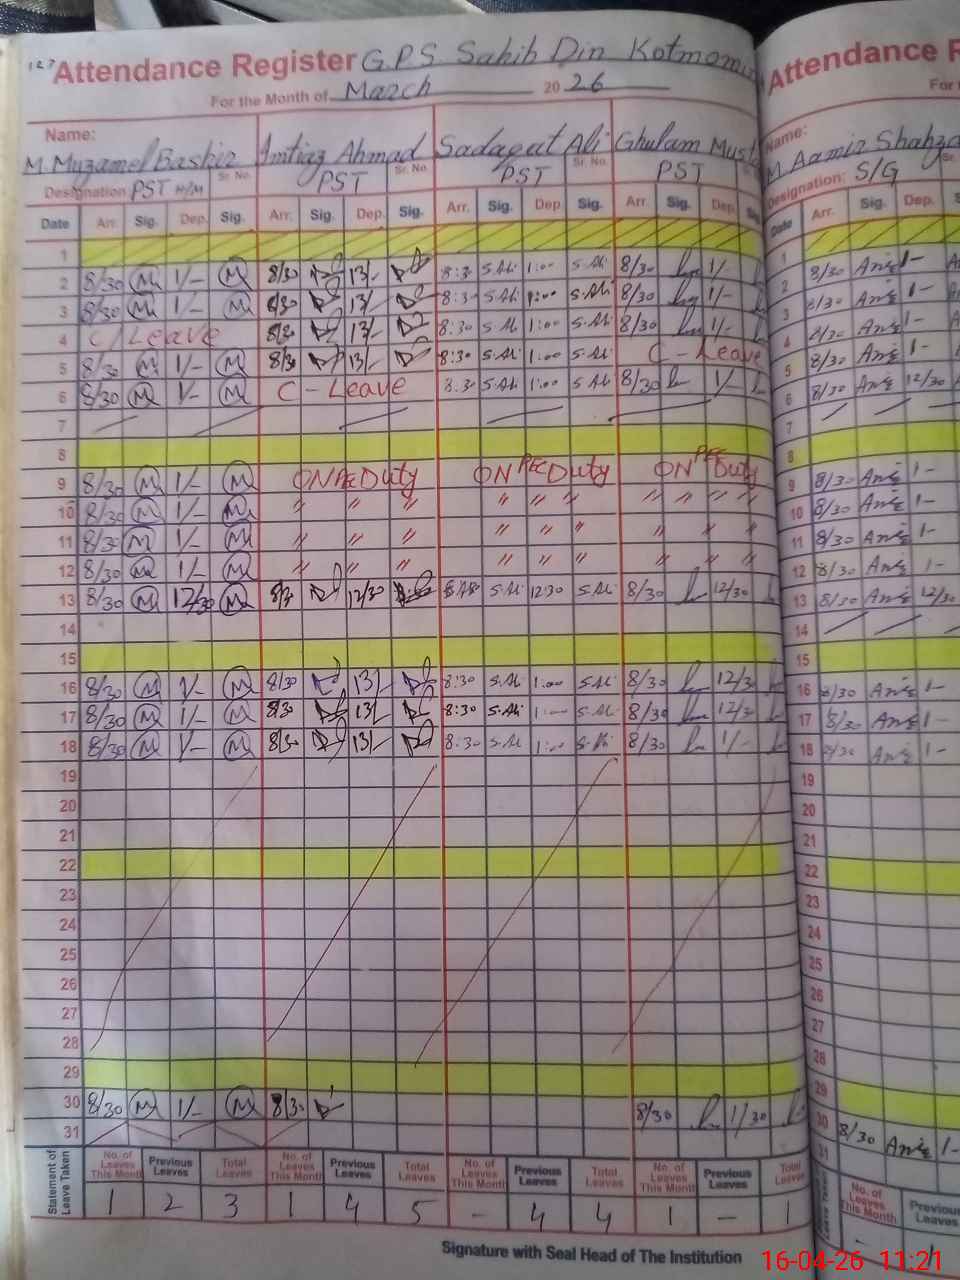 127 Attendance Register G.P.S. Sahib Din Kotmomin
For the Month of March 2026
Name:
M. Muzamel Bashir Imtiaz Ahmad Sadaqat Ali Ghulam Must
Designation PST M/M Sr. No. PST Sr. No. PST Sr. No. PST
Date Arr. Sig. Dep. Sig. Arr. Sig. Dep. Sig. Arr. Sig. Dep. Sig. Arr. Sig. Dep. Sig.
1
2 8/30 M 1/- M 8/30 13/- 8:30 S.Ali 1:00 S.Ali 8/30 1/-
3 8/30 M 1/- M 8/30 13/- 8:30 S.Ali 1:00 S.Ali 8/30 1/-
4 C/Leave 8/30 13/- 8:30 S.Ali 1:00 S.Ali 8/30 1/-
5 8/30 M 1/- M 8/30 13/- 8:30 S.Ali 1:00 S.Ali C-Leave
6 8/30 M 1/- M C-Leave 8:30 S.Ali 1:00 S.Ali 8/30 1/-
7
8
9 8/30 M 1/- M ON PEC Duty ON PEC Duty ON PEC Duty
10 8/30 M 1/- M " " " " " " " " " "
11 8/30 M 1/- M " " " " " " " " "
12 8/30 M 1/- M " " " " " " " " "
13 8/30 M 12/30 M 8/30 12/30 S.Ali 12:30 S.Ali 8/30 12/30
14
15
16 8/30 M 1/- M 8/30 13/- 8:30 S.Ali 1:00 S.Ali 8/30 12/30
17 8/30 M 1/- M 8/30 13/- 8:30 S.Ali 1:00 S.Ali 8/30 12/30
18 8/30 M 1/- M 8/30 13/- 8:30 S.Ali 1:00 S.Ali 8/30 1/-
19
20
21
22
23
24
25
26
27
28
29
30 8/30 M 1/- M 8/30 8/30 1/30
31
Statement of Leave Taken
No. of Leaves This Month Previous Leaves Total Leaves No. of Leaves This Month Previous Leaves Total Leaves No. of Leaves This Month Previous Leaves Total Leaves No. of Leaves This Month Previous Leaves Total Leaves
1 2 3 1 4 5 - 4 4 1 - 1
Signature with Seal Head of The Institution
Attendance R
For
Name:
M. Aamir Shahza
Designation: S/G
Date Arr. Sig. Dep.
1
2 8/30 Anis 1-
3 8/30 Anis 1-
4 8/30 Anis 1-
5 8/30 Anis 1-
6 8/30 Anis 12/30
7
8
9 8/30 Anis 1-
10 8/30 Anis 1-
11 8/30 Anis 1-
12 8/30 Anis 1-
13 8/30 Anis 12/30
14
15
16 8/30 Anis 1-
17 8/30 Anis 1-
18 8/30 Anis 1-
19
20
21
22
23
24
25
26
27
28
29
30 8/30 Anis 1-
31
Leave Taken
No. of Leaves This Month Previous Leaves
- 1
16-04-26 11:21